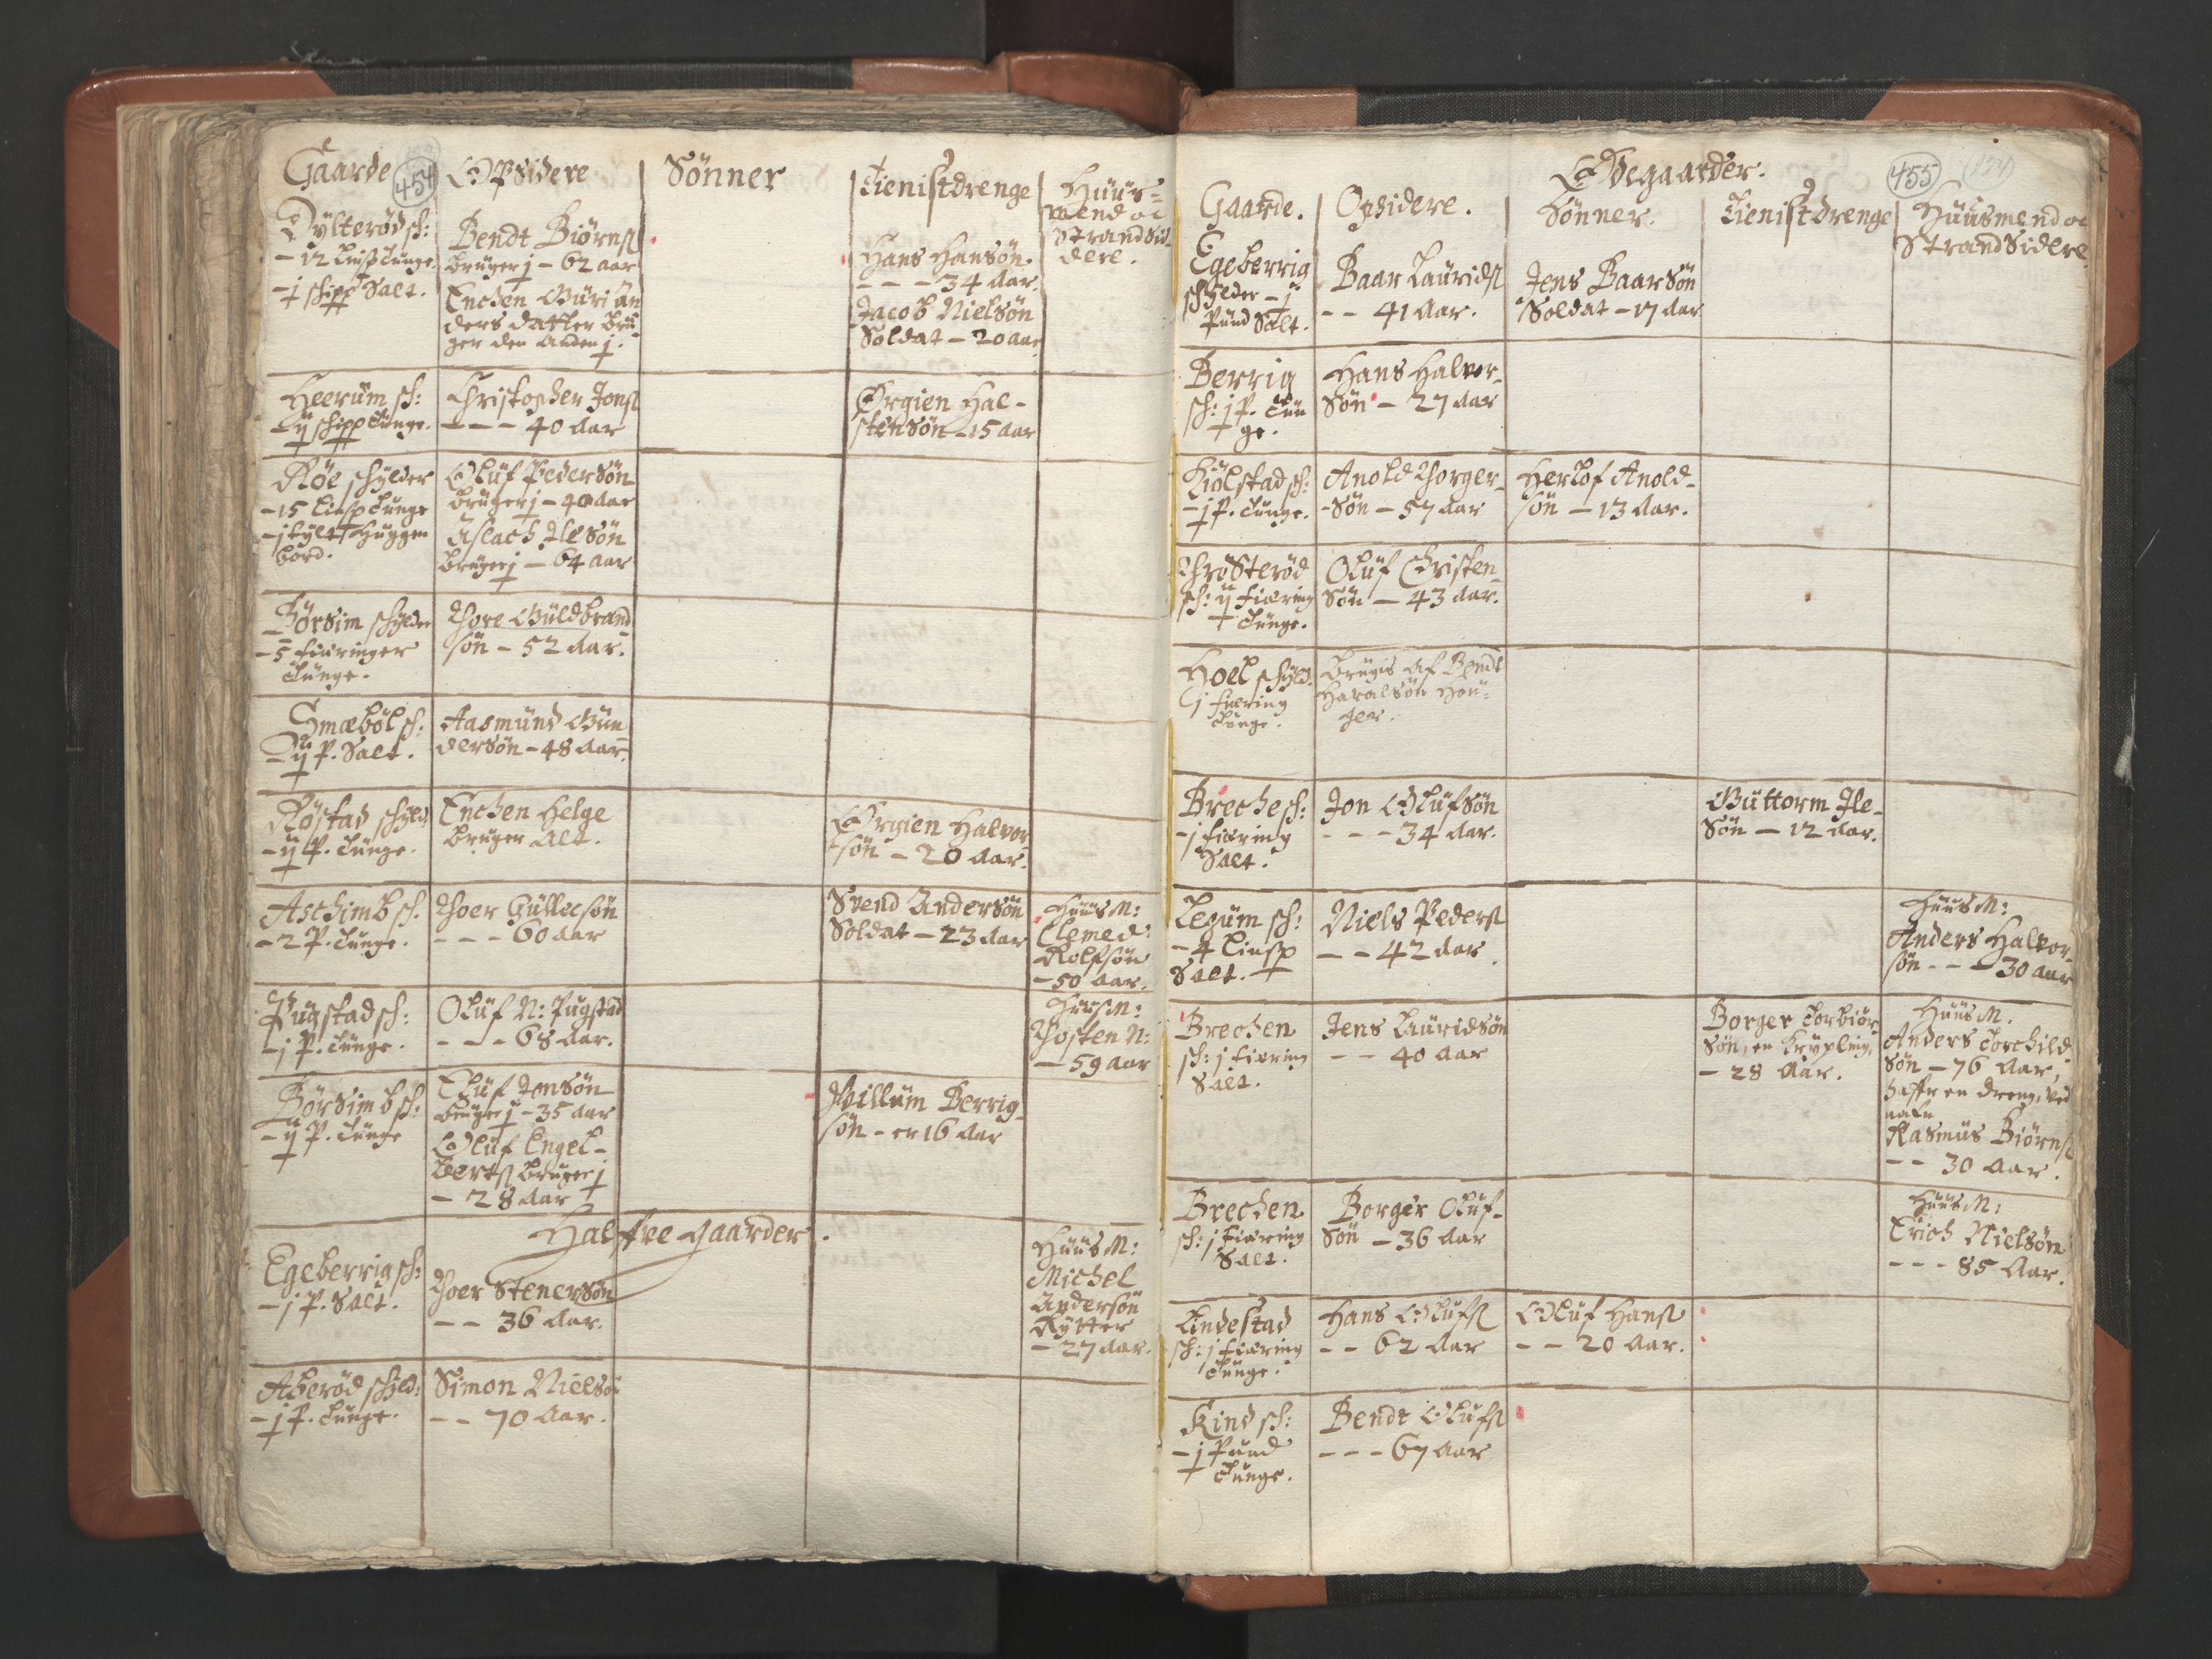 454
Gaarde
Opsidere
Sønner
Tienistdrenge
Huus-
mend oc
Strandsid-
dere.
Dylterød sch:
- 12 Lispd Tunge
- j schipp Salt.
Bendt Biørnsſ
bruger j - 62 aar
Enchen Guri An
ders datter bru
ger den anden j.
Hans Hansøn
- - - 34 Aar.
Jacob Nielsøn
Soldat - 20 aar
Heerum sch:
- ij schipp Tunge.
Christopher Jonsſ
- - - 40 Aar
Ørgien Hal-
stensøn - 15 aar
Røe schylder
- 15 Lisp Tunge
- j tylt Huggen
bord.
Oluf Pedersøn
bruger j - 40 aar
Aslach Jlesøn
bruger j - 64 aar
Børsim schylder
- 5 fiæringer
Tunge.
Thore Guldbrand
søn - 52 Aar.
Smæbøl sch:
- ij P. Salt.
Aasmund Gun
dersøn - 48 Aar.
Røstad schyld:
- ij P. Tunge.
Enchen Helge
bruger alt.
Ørgien Halvor
søn - 20 Aar.
Aschimb sch.
- 2 P. Tunge.
Thoer Gullecsøn
- - - 60 aar
Svend Andersøn
Soldat - 23 Aar
Huus M:
Clemed
Rolfsøn
- 50 aar.
Pugstad sch:
- j P. Tunge.
Oluf N: Pugstad
- - - 68 Aar.
Huus M:
Thosten N:
- 59 aar
Børsimb sch:
- ij P. Tunge
Eluf Jonsøn
bruger j - 35 aar
Oluf Engel-
bertsſ bruger j
- 28 Aar
Willum Berrig-
søn - er 16 Aar
Halfve gaarder.
Egeberrig sch:
- j P. Salt.
Thoer Stenersøn
- - 36 Aar.
Huus M:
Michel
Andersøn
Rytter
- 27 aar.
Aberød schyld:
- j P. Tunge.
Simon Nielsø
- - 70 Aar.
Ødegaarder.
455
Gaarde.
Opsidere.
Sønner.
Tienistdrenge
Huusmend oc
Strandsidere
Egeberrig
schylder - j
Pund Salt.
Baar Lauridsſ
- - 41 Aar.
Jens Baarsøn
Soldat - 17 Aar
Berrig
sch: j P. Tun
ge.
Hans Halvor-
søn - 27 Aar
Kiølstad sch:
- j P. Tunge.
Anold Thorger-
søn - 57 Aar
Herlof Anold-
søn - 13 Aar.
Throsterød
sch: ij fiæring
Tunge.
Oluf Christen-
søn - 43 Aar.
Hoel schyld.
j fiæring
Tunge.
brugis af Bendt
Haralsøn Hou-
ger.
Breche sch:
- j fiæring
Salt.
Jon Olufsøn
- - - 34 Aar.
Guttorm Jle-
søn - 12 Aar.
Legum sch:
- 4 Lisp
Salt.
Niels Pedersſ
- - 42 Aar.
Huus M:
Anders Halvor-
søn - - - 30 aar
Brechen
sch: j fiæring
Salt.
Jens Lauridsøn
- - 40 Aar
Borger Torbiør
søn, en Krypling,
- 28 Aar.
Huus M.
Anders Torchild
søn - 76 Aar,
haffr en dreng, ved
nafn
Rasmus Biørnsſ
- - 30 Aar.
Brechen
sch: j fiæring
Salt.
Borger Oluf-
søn - 36 Aar
Huus M:
Erich Nielsøn
- - - 85 Aar.
Lindestad
sch: j fiæring
Tunge.
Hans Olufsſ
- - 62 Aar
Oluf Hansſ
- - 20 Aar.
Kind sch:
- j Pund
Tunge.
Bendt Olufsſ
- - - 67 Aar